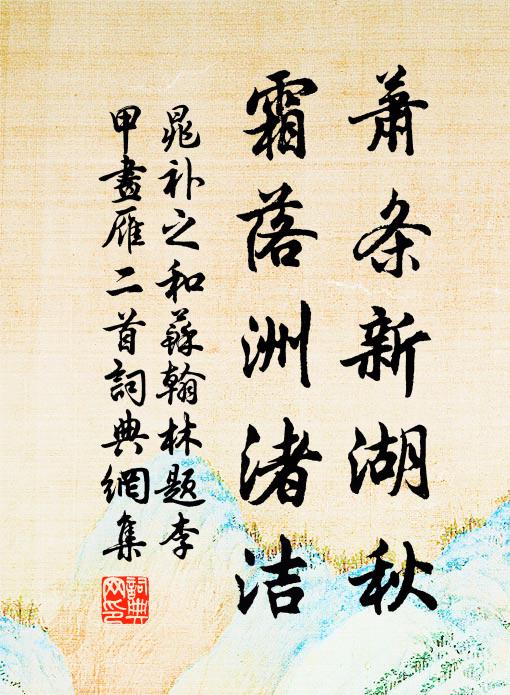 萧条新湖秋
霜落洲渚洁
晁补之和蘇翰林题李
甲畫雁二首詞典網集
詞典网印